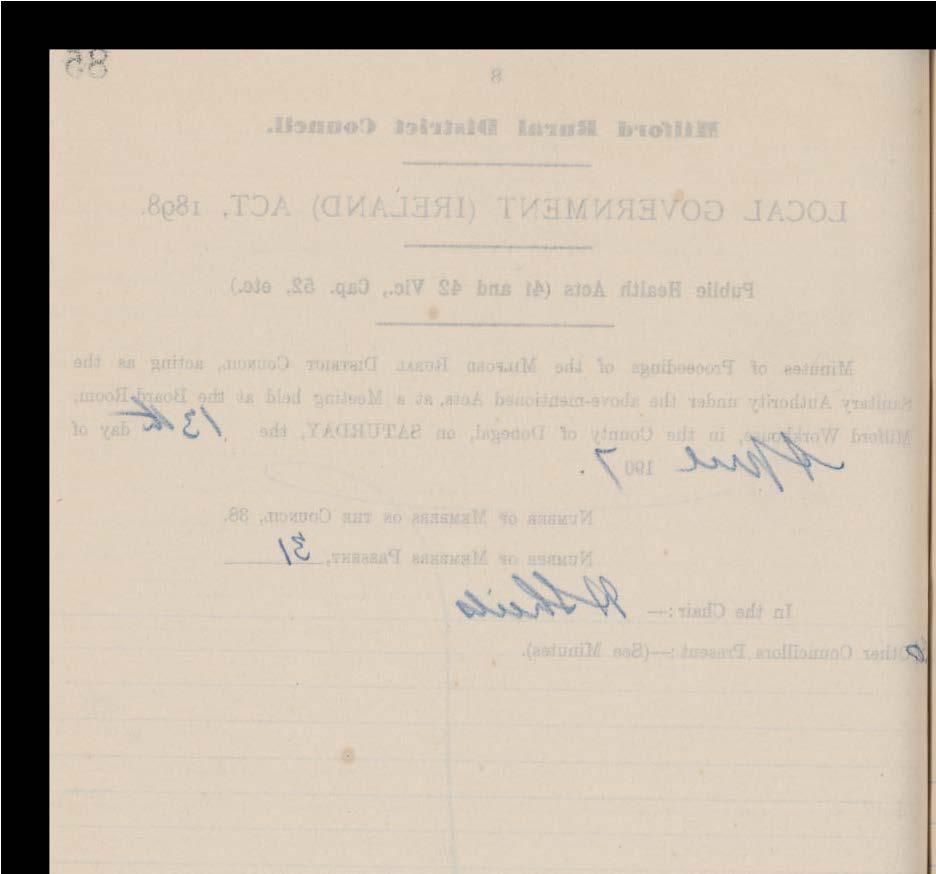 85
8
Milford Rural District Council.
LOCAL GOVERNMENT (IRELAND) ACT, 1898.
Public Health Acts (41 and 42 Vic., Cap. 52, etc.)
Minutes of Proceedings of the Milford Rural District Council, acting as the
Sanitary Authority under the above-mentioned Acts, at a Meeting held at the Board Room,
Milford Workhouse, in the County of Donegal, on SATURDAY, the 13th day of
April 1907.
Number of Members on the Council, 38.
Number of Members Present, 31
In the Chair:— H Sheils
Other Councillors Present:—(See Minutes).